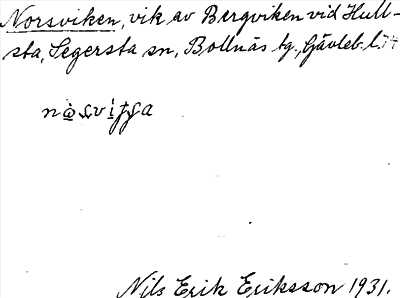 Norsviken, vik av Bergviken vid Hull-
sta, Segersta sn, Bollnäs tg., Gävleb. l.
Nils Erik Eriksson 1931.